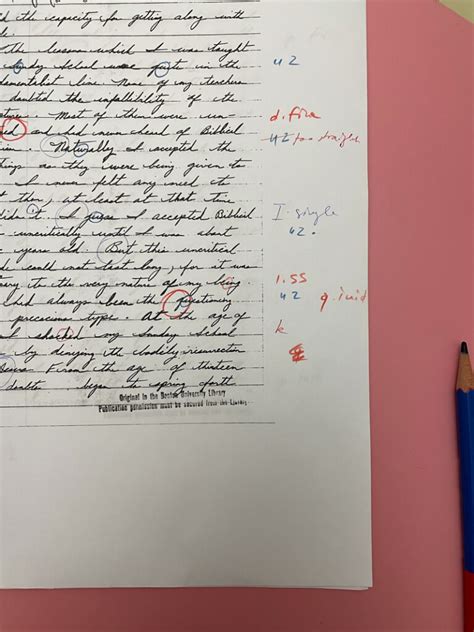 d the capacity for getting along with
the lessons which I was taught
Sunday School were quite in the
damentalist line. None of my teachers
doubted the infallibility of the
Most of them were un-
and had never heard of Biblical
Naturally I accepted the
things as they were being given to
I never felt any need to
them, at least at that time
I guess I accepted Biblical
uncritically until I was about
years old. But this uncritical
could not last long, for it was
to the very nature of my being.
had always been the questioning
precocious type. At the age of
I shocked my Sunday School
by denying the bodily resurrection
Jesus. From the age of thirteen
doubts began to spring forth
Original in the Boston University Library
Publication permission must be secured from the Library
42
d. fire
42 too straight
I. single
42.
1. SS
42
k